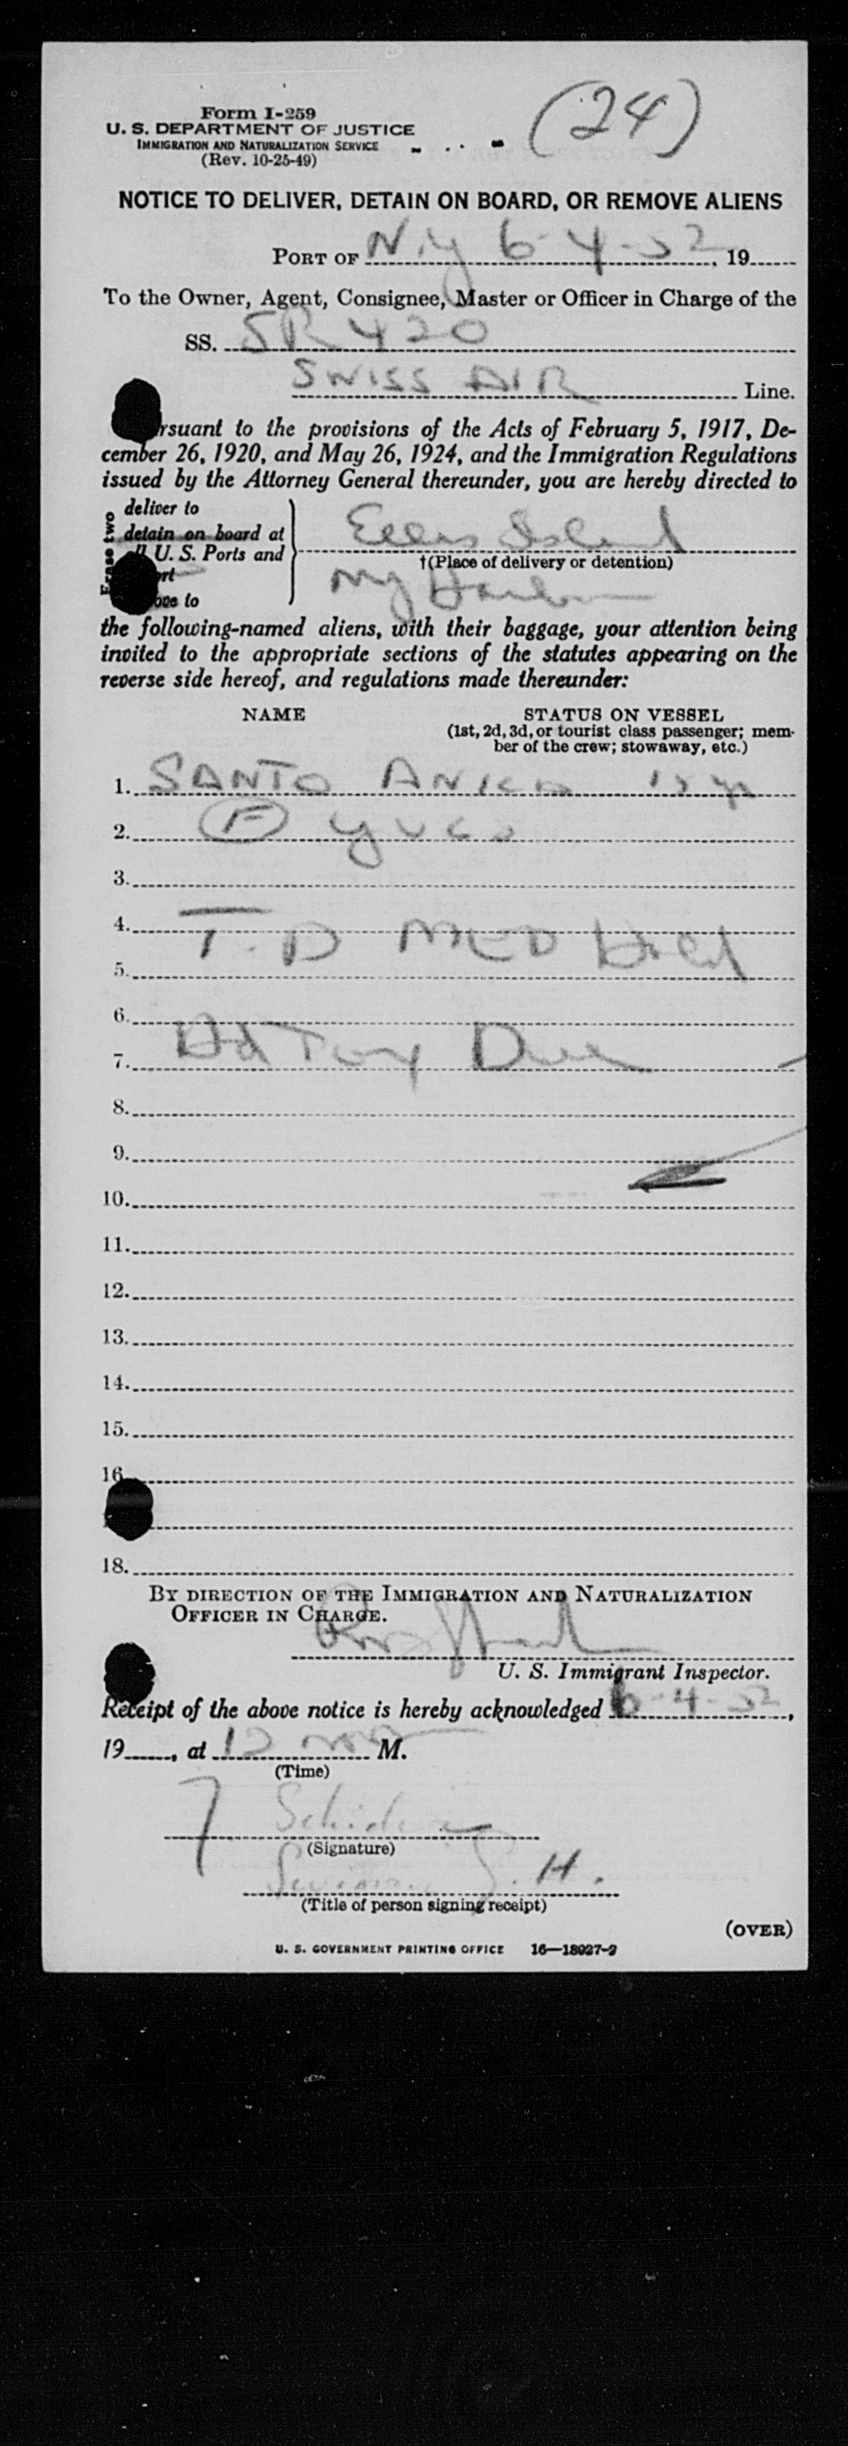 (24)
Form I-259
U. S. DEPARTMENT OF JUSTICE
IMMIGRATION AND NATURALIZATION SERVICE
(Rev. 10-25-49)
NOTICE TO DELIVER, DETAIN ON BOARD, OR REMOVE ALIENS
PORT OF N.Y 6-4-52, 19
To the Owner, Agent, Consignee, Master or Officer in Charge of the
SS. SR 420
SWISS AIR Line.
rsuant to the provisions of the Acts of February 5, 1917, De-
cember 26, 1920, and May 26, 1924, and the Immigration Regulations
issued by the Attorney General thereunder, you are hereby directed to
Erase two
deliver to
detain on board at
U. S. Ports and
to
Ellis Island
†(Place of delivery or detention)
NY Harbor
the following-named aliens, with their baggage, your attention being
invited to the appropriate sections of the statutes appearing on the
reverse side hereof, and regulations made thereunder:
NAME STATUS ON VESSEL
(1st, 2d, 3d, or tourist class passenger; mem-
ber of the crew; stowaway, etc.)
1. SANTO
2. (F) YUGO
3.
4.
T. D MED Hold
5.
6.
Hd Tax Due
7.
8.
9.
10.
11.
12.
13.
14.
15.
16
18.
BY DIRECTION OF THE IMMIGRATION AND NATURALIZATION
OFFICER IN CHARGE.
U. S. Immigrant Inspector.
Receipt of the above notice is hereby acknowledged 6-4-52,
19, at 12 M.
(Time)
(Signature)
(Title of person signing receipt)
(OVER)
U. S. GOVERNMENT PRINTING OFFICE 16—18027-2